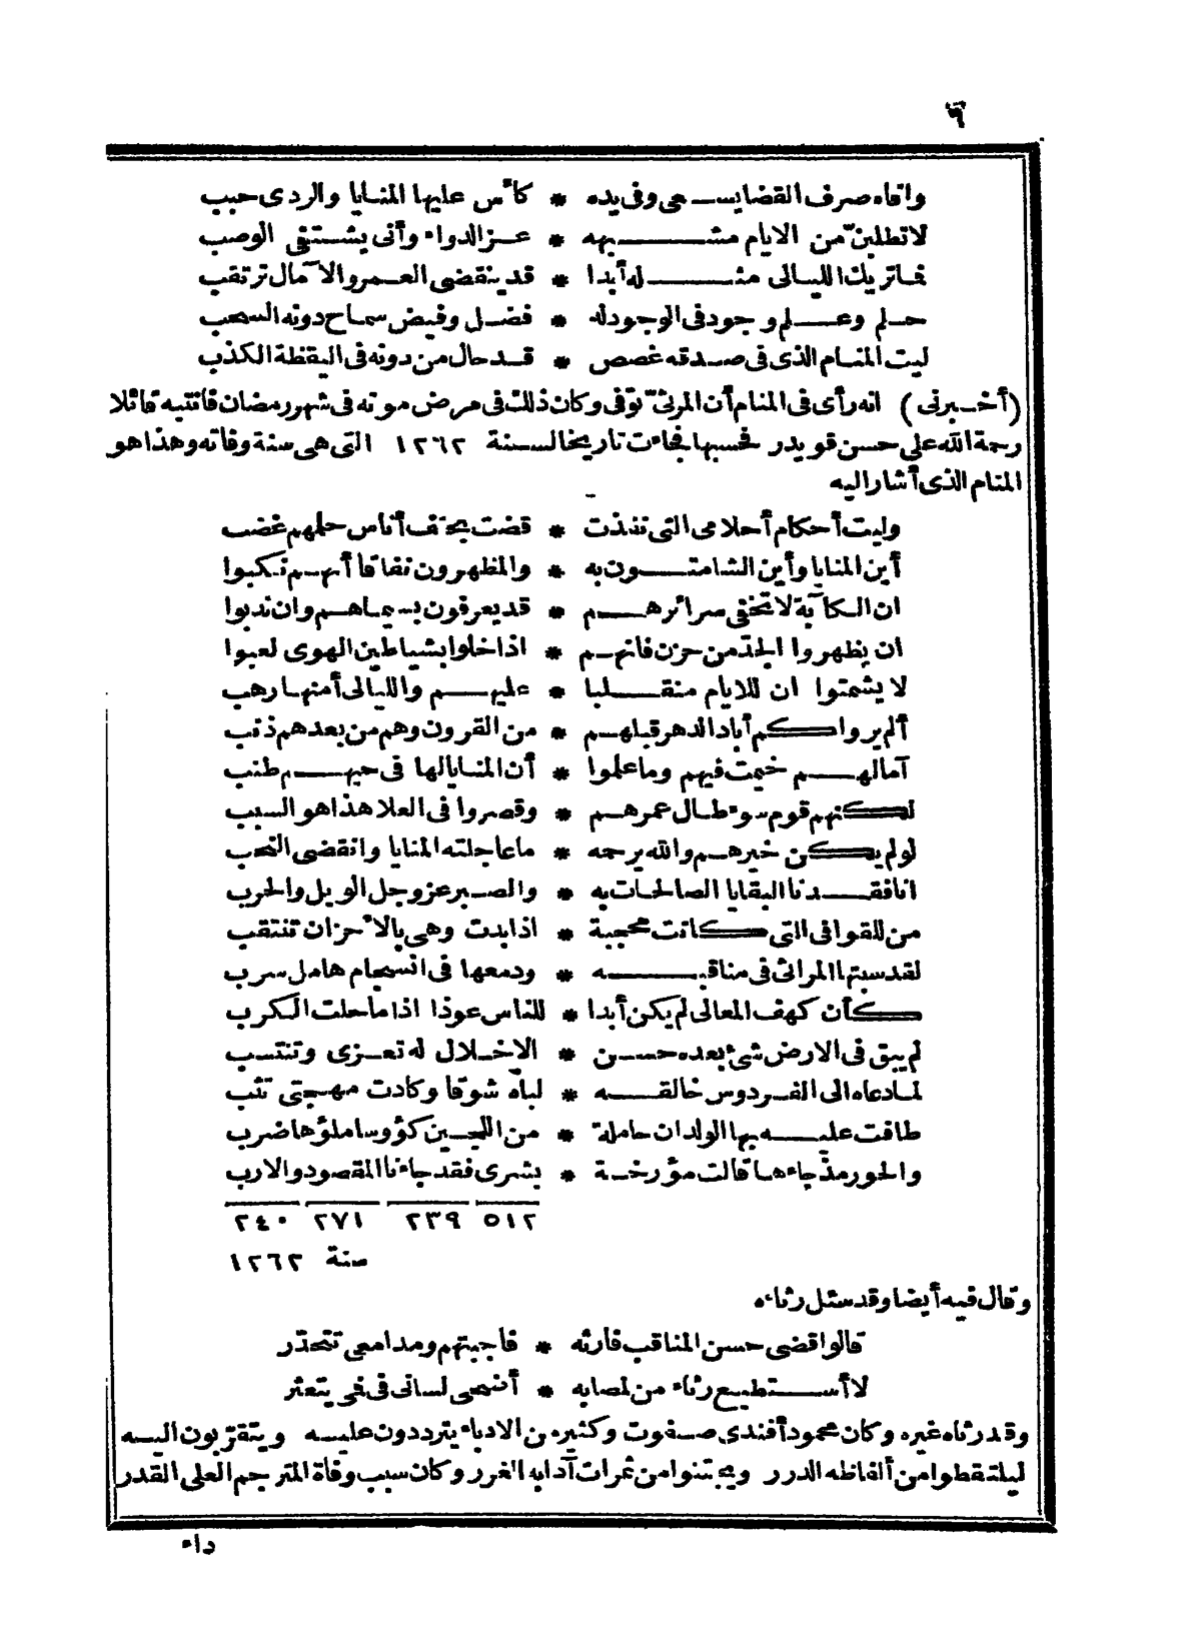 ٦
وافاه صرف القضا يسعى وفى يده * كأس عليها المنايا والردى حبب
لا تطلبنّ من الايام مشبهه * عز الدواء وأنى يشتفى الوصب
فما تريك الليالى مثله أبدا * قد ينقضى العمر والآمال ترتقب
حلم وعلم وجود فى الوجود له * فضل وفيض سماح دونه السحب
ليت المنام الذى فى صدقه غصص * قد حال من دونه فى اليقظة الكذب
(أخبرنى) انه رأى فى المنام أن المرثىّ توفى وكان ذلك فى مرض موته فى شهر رمضان فانتبه قائلا
رحمة الله على حسن قويدر فحسبها فجاءت تاريخا لسنة ١٢٦٢ التى هى سنة وفاته وهذا هو
المنام الذى أشار اليه
وليت أحكام أحلامى التى نفذت * قضت بحتف أناس حلمهم غضب
أين المنايا وأين الشامتون به * والمظهرون نفاقا أنهم نكبوا
ان الكآبة لا تخفى سرائرهم * قد يعرفون بسيماهم وان ندبوا
ان يظهروا الجدّ من حزن فانهم * اذا خلوا بشياطين الهوى لعبوا
لا يشمتوا ان للايام منقلبا * عليهم والليالى أمنها رهب
ألم يروا كم أباد الدهر قبلهم * من القرون وهم من بعدهم ذنب
آمالهم خيمت فيهم وما علموا * أن المنايا لها فى حيهم طنب
لكنهم قوم سوء طال عمرهم * وقصروا فى العلا هذا هو السبب
لو لم يكن خيرهم والله يرحمه * ما عاجلته المنايا وانقضى النحب
انا فقدنا البقايا الصالحات به * والصبر عز وجل الويل والحرب
من للقوافى التى كانت محجبة * اذا بدت وهى بالأحزان تنتقب
لقد سبتها المراثى فى مناقبه * ودمعها فى انسجام هامل سرب
كأن كهف المعالى لم يكن أبدا * للناس عوذا اذا ما حلت الكرب
لم يبق فى الارض شئ بعده حسن * الا خلال له تعزى وتنتسب
لما دعاه الى الفردوس خالقه * لباه شوقا وكادت مهجتى تثب
طافت عليه بها الولدان حاملة * من اللجين كؤوسا ملؤها ضرب
والحور مذ جاءها قالت مؤرخة * بشرى فقد جاءنا المقصود والارب
٥١٢ ٢٣٩ ٢٧١ ٢٤٠
سنة ١٢٦٢
وقال فيه أيضا وقد سئل رثاءه
قالوا قضى حسن المناقب فارثه * فاجبتهم ومدامعى تتحدّر
لا أستطيع رثاء من لمصابه * أضحى لسانى فى فمى يتعثر
وقد رثاه غيره وكان محمود أفندى صفوت وكثير من الادباء يترددون عليه ويتقرّبون اليه
ليلتقطوا من ألفاظه الدرر ويجتنوا من ثمرات آدابه الغرر وكان سبب وفاة المترجم العلى القدر
داء